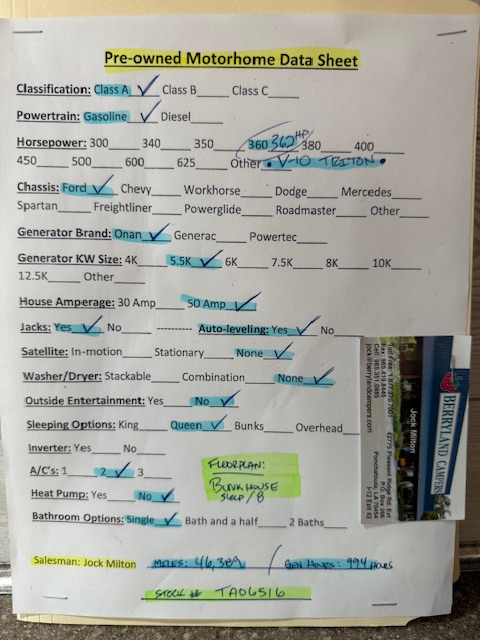 Pre-owned Motorhome Data Sheet
Classification: Class A ✓ Class B____ Class C____
Powertrain: Gasoline ✓ Diesel____
Horsepower: 300____ 340____ 350____ 360 362 HP 380____ 400____
450____ 500____ 600____ 625____ Other • V-10 TRITON •
Chassis: Ford ✓ Chevy____ Workhorse____ Dodge____ Mercedes____
Spartan____ Freightliner____ Powerglide____ Roadmaster____ Other____
Generator Brand: Onan ✓ Generac____ Powertec____
Generator KW Size: 4K____ 5.5K ✓ 6K____ 7.5K____ 8K____ 10K____
12.5K____ Other____
House Amperage: 30 Amp____ 50 Amp ✓
Jacks: Yes ✓ No____ ---------- Auto-leveling: Yes ✓ No____
Satellite: In-motion____ Stationary____ None ✓
Washer/Dryer: Stackable____ Combination____ None ✓
Outside Entertainment: Yes____ No ✓
Sleeping Options: King____ Queen ✓ Bunks____ Overhead____
Inverter: Yes____ No____
A/C's: 1____ 2 ✓ 3____
Heat Pump: Yes____ No ✓
Bathroom Options: Single ✓ Bath and a half____ 2 Baths____
FLOORPLAN:
BUNKHOUSE
SLEEP/8
Salesman: Jock Milton MILES: 46,389 / GEN HOURS: 994 HOURS
STOCK # TA06516
BERRYLAND CAMPERS
Jock Milton
42775 Pleasant Ridge Rd. Ext
P.O. Box 266
Ponchatoula, LA 70454
I-12 Exit 42
jock@berrylandcampers.com